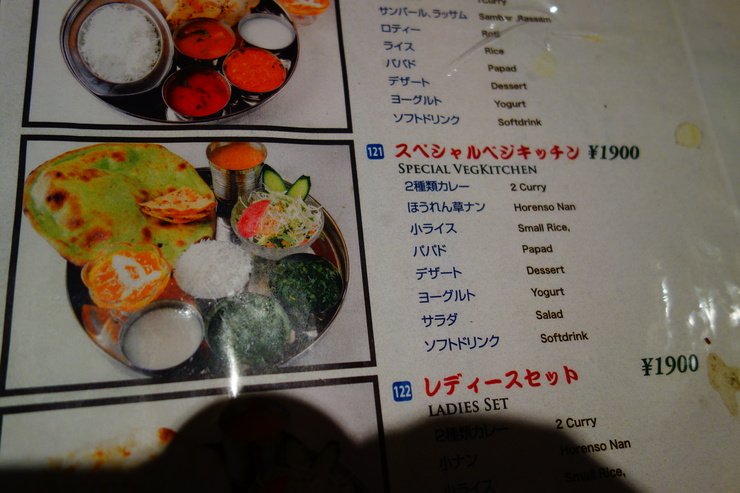 サンバール、ラッサム Sambar ,Rassam
ロティー Roti
ライス Rice
パパド Papad
デザート Dessert
ヨーグルト Yogurt
ソフトドリンク Softdrink
121 スペシャルベジキッチン ¥1900
SPECIAL VEGKITCHEN
2種類カレー 2 Curry
ほうれん草ナン Horenso Nan
小ライス Small Rice,
パパド Papad
デザート Dessert
ヨーグルト Yogurt
サラダ Salad
ソフトドリンク Softdrink
122 レディースセット ¥1900
LADIES SET
2種類カレー 2 Curry
小ナン Horenso Nan
小ライス Small Rice,